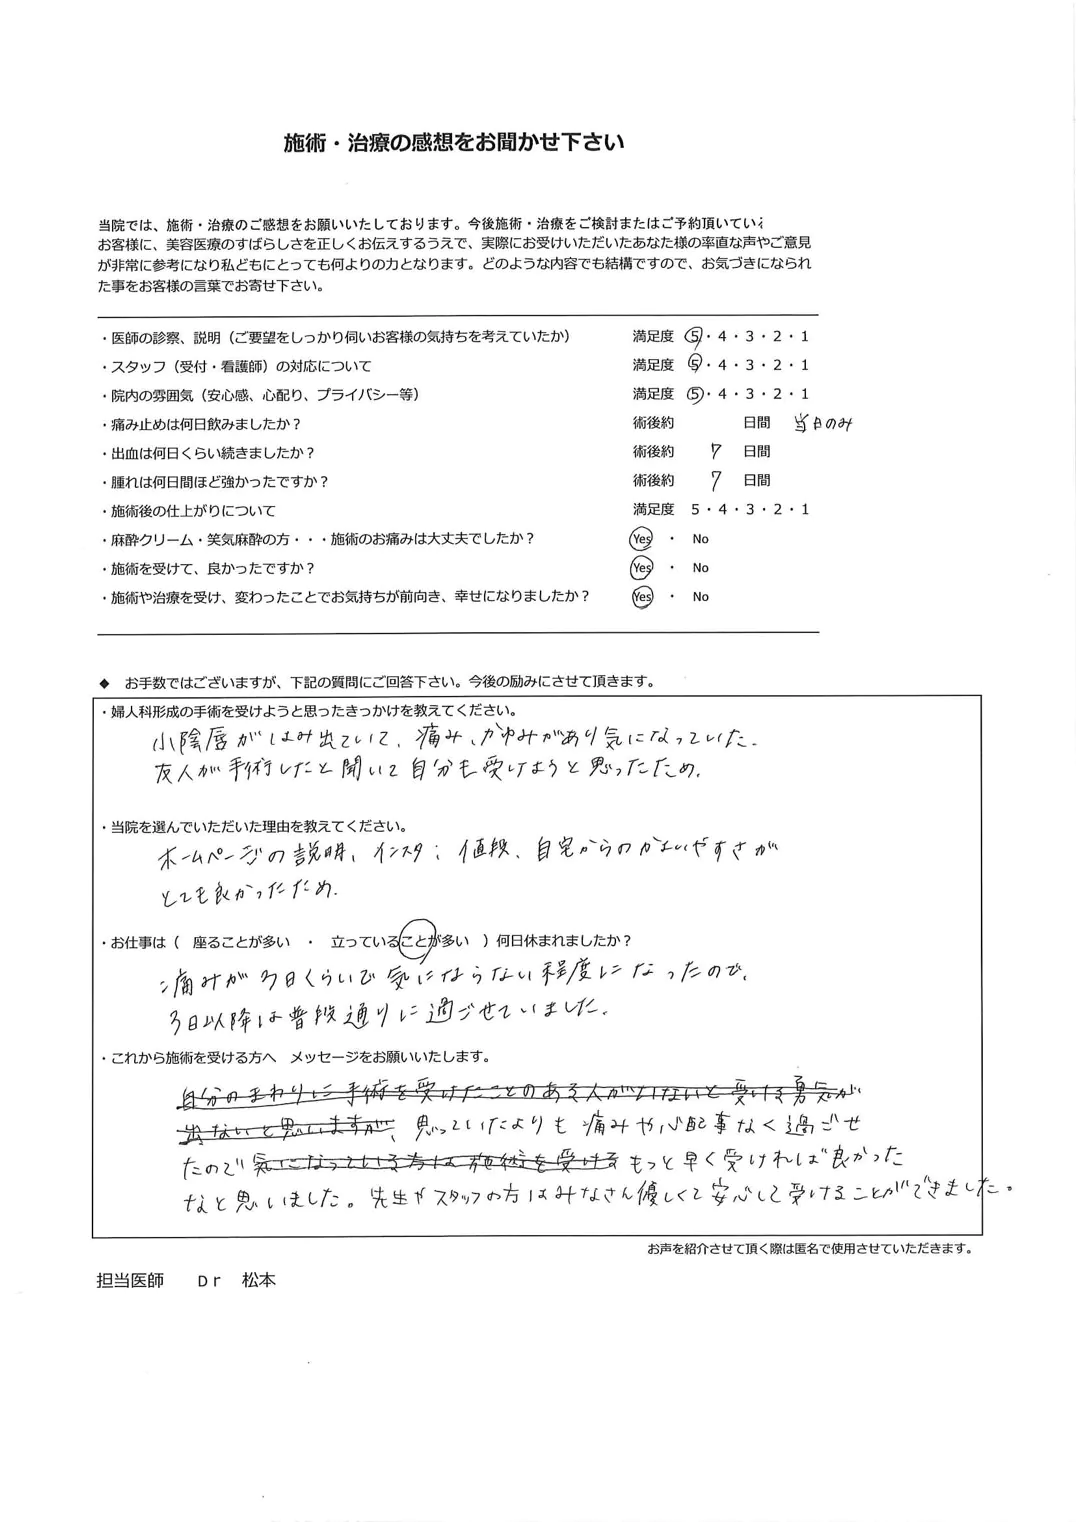 施術・治療の感想をお聞かせ下さい
当院では、施術・治療のご感想をお願いいたしております。今後施術・治療をご検討またはご予約頂いてい
お客様に、美容医療のすばらしさを正しくお伝えするうえで、実際にお受けいただいたあなた様の率直な声やご意見
が非常に参考になり私どもにとっても何よりの力となります。どのような内容でも結構ですので、お気づきになられ
た事をお客様の言葉でお寄せ下さい。
・医師の診察、説明（ご要望をしっかり伺いお客様の気持ちを考えていたか） 満足度 5・4・3・2・1
・スタッフ（受付・看護師）の対応について 満足度 5・4・3・2・1
・院内の雰囲気（安心感、心配り、プライバシー等） 満足度 5・4・3・2・1
・痛み止めは何日飲みましたか？ 術後約 日間 当日のみ
・出血は何日くらい続きましたか？ 術後約 7 日間
・腫れは何日間ほど強かったですか？ 術後約 7 日間
・施術後の仕上がりについて 満足度 5・4・3・2・1
・麻酔クリーム・笑気麻酔の方・・・施術のお痛みは大丈夫でしたか？ Yes ・ No
・施術を受けて、良かったですか？ Yes ・ No
・施術や治療を受け、変わったことでお気持ちが前向き、幸せになりましたか？ Yes ・ No
◆ お手数ではございますが、下記の質問にご回答下さい。今後の励みにさせて頂きます。
・婦人科形成の手術を受けようと思ったきっかけを教えてください。
小陰唇がはみ出ていて、痛み、かゆみがあり気になっていた。
友人が手術したと聞いて自分も受けようと思ったため。
・当院を選んでいただいた理由を教えてください。
ホームページの説明、インスタ、値段、自宅からのかよいやすさが
とても良かったため。
・お仕事は（ 座ることが多い ・ 立っていることが多い ）何日休まれましたか？
痛みが3日くらいで気にならない程度になったので、
3日以降は普段通りに過ごせていました。
・これから施術を受ける方へ メッセージをお願いいたします。
自分のまわりに手術を受けたことのある人がいないと受ける勇気が
出ないと思いますが、思っていたよりも痛みや心配事なく過ごせ
たので気になっている方は施術を受けるもっと早く受ければ良かった
なと思いました。先生やスタッフの方はみなさん優しくて安心して受けることができました。
お声を紹介させて頂く際は匿名で使用させていただきます。
担当医師 Dr 松本